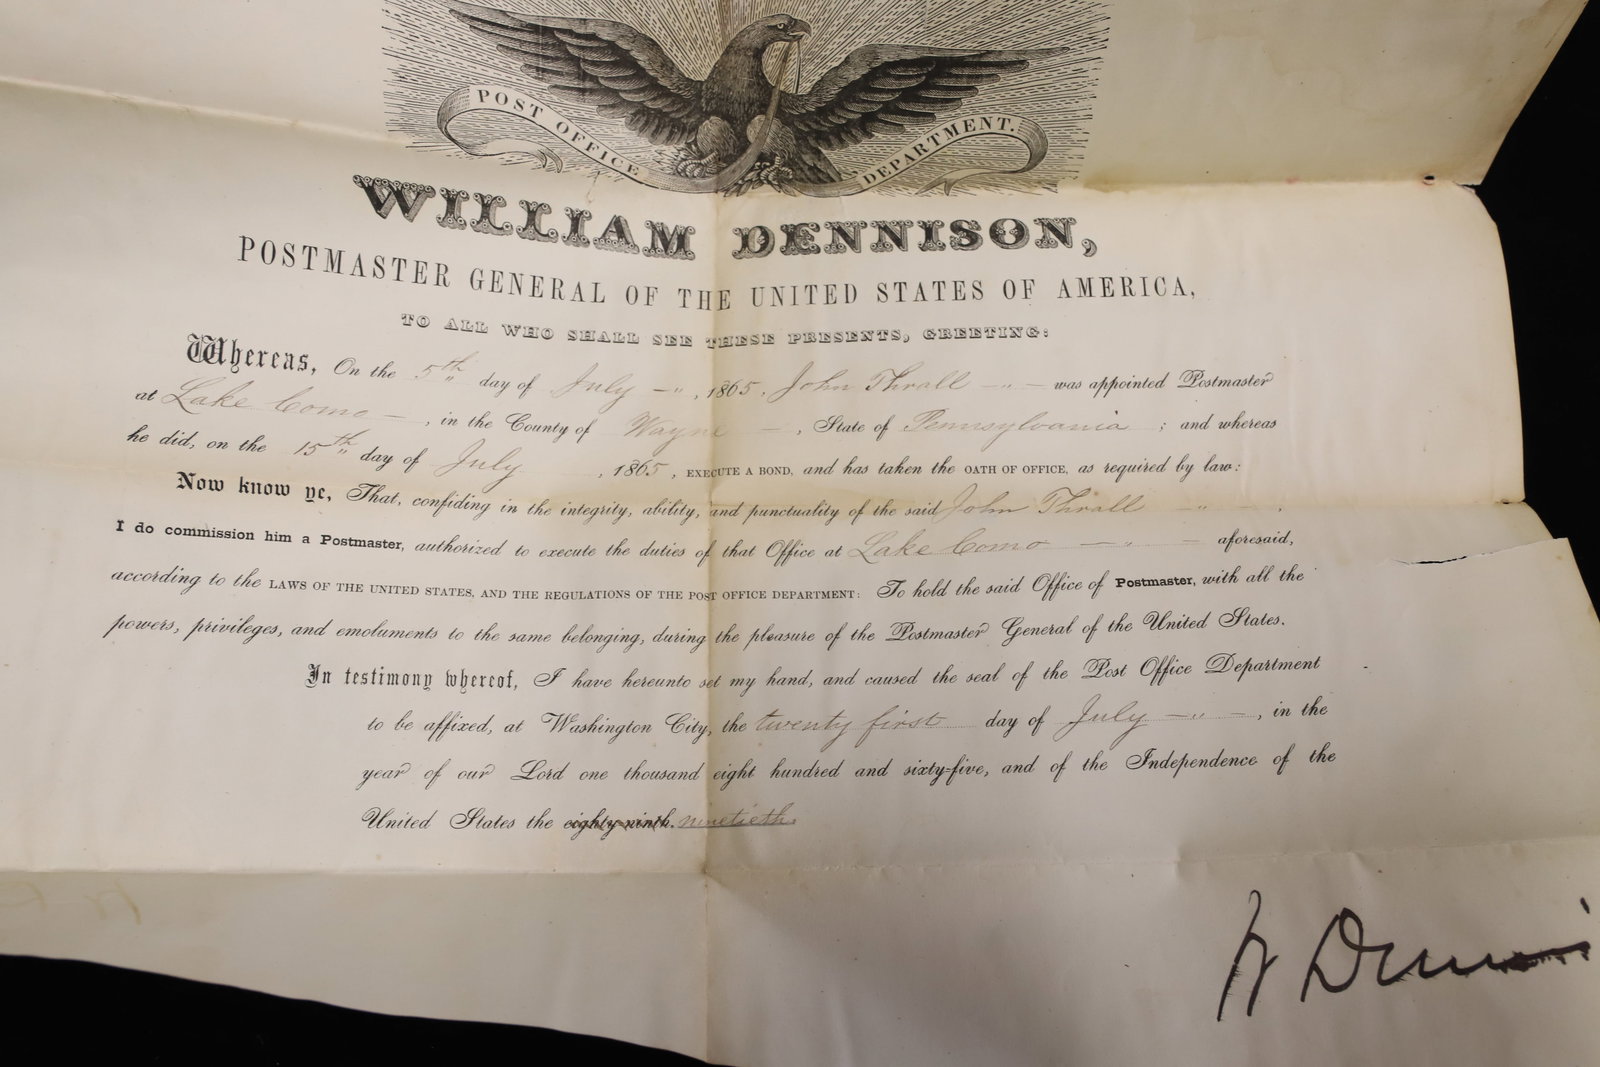 POST OFFICE DEPARTMENT.
WILLIAM DENNISON,
POSTMASTER GENERAL OF THE UNITED STATES OF AMERICA,
TO ALL WHO SHALL SEE THESE PRESENTS, GREETING:
Whereas, On the 5th day of July —"—, 1865, John Thrall —"— was appointed Postmaster
at Lake Como —, in the County of Wayne —, State of Pennsylvania ; and whereas
he did, on the 15th day of July , 1865, EXECUTE A BOND, and has taken the OATH OF OFFICE, as required by law:
Now know ye, That, confiding in the integrity, ability, and punctuality of the said John Thrall —"—.
I do commission him a Postmaster, authorized to execute the duties of that Office at Lake Como —"— aforesaid,
according to the LAWS OF THE UNITED STATES, AND THE REGULATIONS OF THE POST OFFICE DEPARTMENT: To hold the said Office of Postmaster, with all the
powers, privileges, and emoluments to the same belonging, during the pleasure of the Postmaster General of the United States.
In testimony whereof, I have hereunto set my hand, and caused the seal of the Post Office Department
to be affixed, at Washington City, the twenty first day of July —"—, in the
year of our Lord one thousand eight hundred and sixty-five, and of the Independence of the
United States the eighty-ninth. ninetieth.
W Denni